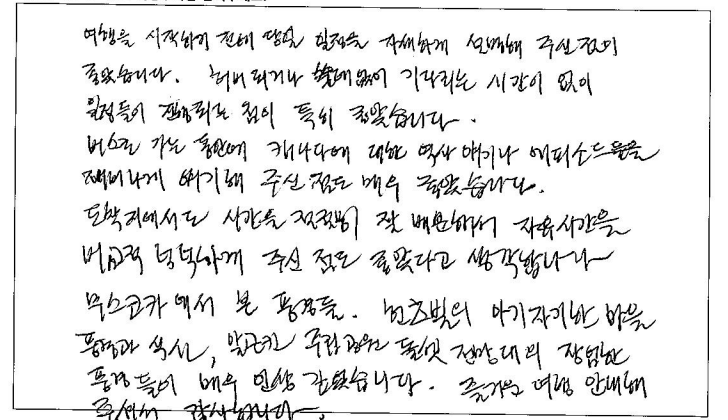 여행을 시작하기 전에 당일 일정을 자세하게 설명해 주신 점이
좋았습니다. 허비되거나 쓸데없이 기다리는 시간이 없이
일정들이 진행되는 점이 특히 좋았습니다.
버스로 가는 동안에 캐나다에 대한 역사 얘기나 에피소드들을
재미나게 얘기해 주신 점도 매우 좋았습니다.
도착지에서도 시간을 적절히 잘 배분해서 자유시간을
비교적 넉넉하게 주신 점도 좋았다고 생각합니다
무스코카에서 본 풍경들. 헌츠빌의 아기자기한 마을
풍경과 식사, 알곤퀸 주립공원 돌셋 전망대의 장엄한
풍경들이 매우 인상 깊었습니다. 즐거운 여행 안내해
주셔서 감사합니다.